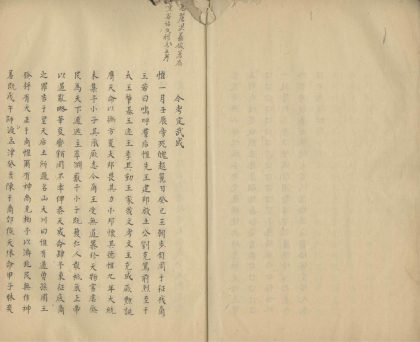 今考定武成
惟一月壬辰旁死魄越翼日癸巳王朝步自周于征伐商
王若曰嗚呼羣后惟先王建邦啟土公劉克篤前烈至于
大王肇基王迹王季其勤王家我文考文王克成厥勳誕
膺天命以撫方夏大邦畏其力小邦懷其德惟九年大統
未集予小子其承厥志今商王受無道暴殄天物害虐烝
民為天下逋逃主萃淵藪予小子既獲仁人敢祗承上帝
以遏亂略華夏蠻貊罔不率俾恭天成命肆予東征底商
之罪告于皇天后土所過名山大川曰惟有道曾孫周王
發將有大正于商惟爾有神尚克相予以濟兆民無作神
羞既戊午師渡孟津癸亥陳于商郊俟天休命甲子昧爽